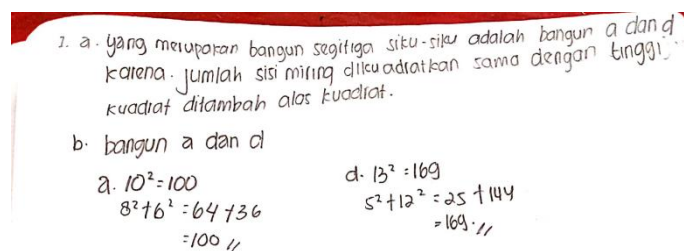 1. a. yang merupakan bangun segitiga siku-siku adalah bangun a dan d
karena. jumlah sisi miring dikuadratkan sama dengan tinggi
kuadrat ditambah alas kuadrat.
b. bangun a dan d
a. 10² = 100
8² + 6² = 64 + 36
= 100 //
d. 13² = 169
5² + 12² = 25 + 144
= 169. //